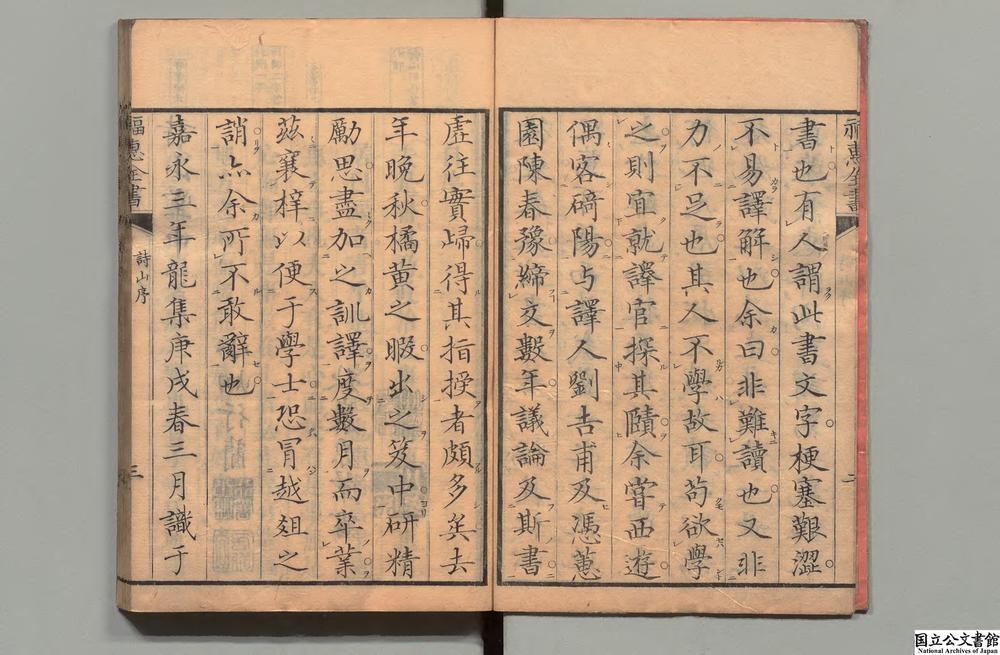 書也有人謂此書文字梗塞艱澀
不易譯解也余曰非難讀也又非
力不足也其人不學故耳苟欲學
之則宜就譯官探其賾余嘗西遊
偶客碕陽与譯人劉吉甫及馮蕙
園陳春豫締文數年議論及斯書
虛往實歸得其指授者頗多矣去
年晚秋橘黃之暇出之笈中研精
勵思盡加之訓譯度數月而卒業
茲襄梓以便于學士恐冒越俎之
誚然余所不敢辭也
嘉永三年龍集庚戌春三月識于
福惠全書
詩山序
三
福惠全書
二
国立公文書館
National Archives of Japan